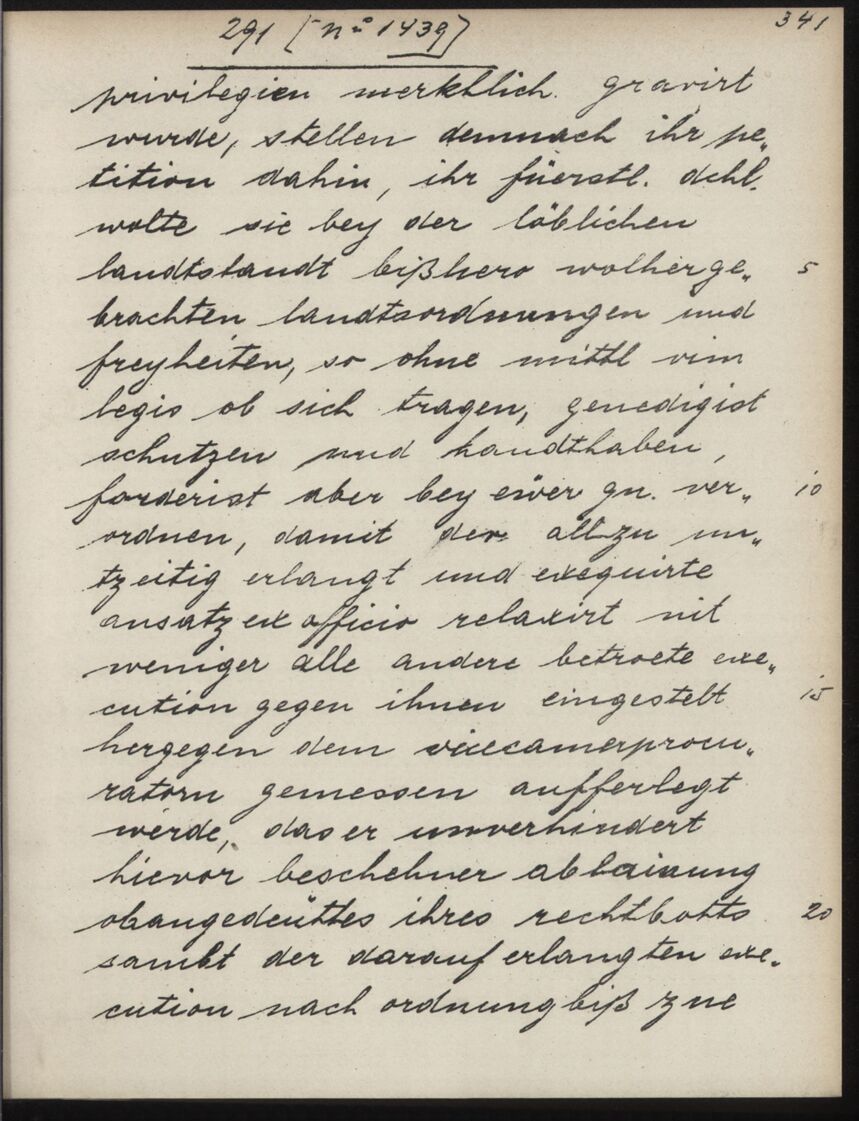 341
291 [nº 1439]
privilegien merkhlich gravirt
wurde, stellen demnach ihr pe„
tition dahin, ihr füerstl. dchl.
wolte sie bey der löblichen
landtstandt bißhero wolherge„ 5
brachten landtsordnungen und
freyheiten, so ohne mittl vim
legis ob sich tragen, genedigist
schutzen und handthaben,
forderist aber bey eüer gn. ver„ 10
ordnen, damit der allzu un„
tzeitig erlangt und exequirte
ansatz ex officio relaxirt nit
weniger alle andere betroete exe„
cution gegen ihnen eingestelt 15
hergegen dem vicecamerprocu„
ratorn gemessen aufferlegt
werde, das er unverhindert
hievor beschehner ablainung
obangedeüttes ihres rechtbotts 20
sambt der darauf erlangten exe„
cution nach ordnung biß zue